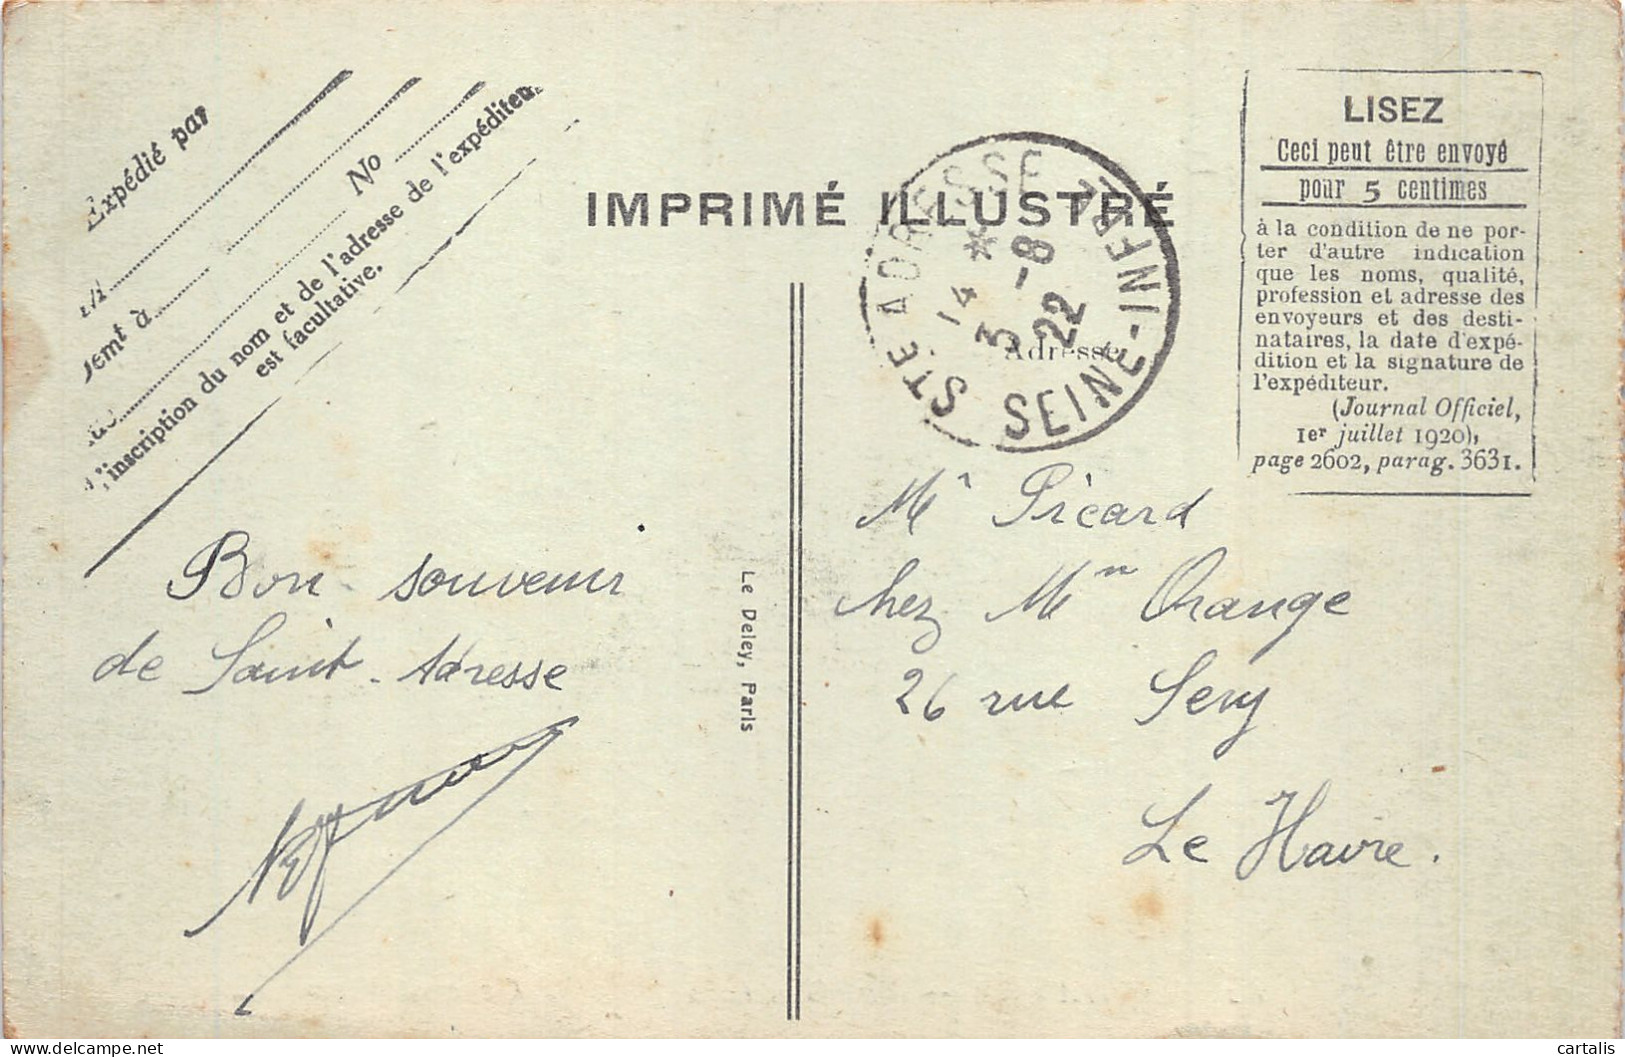 Expédié par
No
à
L'inscription du nom et de l'adresse de l'expéditeur
est facultative.
IMPRIMÉ ILLUSTRÉ
STE ADRESSE
SEINE-INFRE
14 *
3 -8
22
Adresse
LISEZ
Ceci peut être envoyé
pour 5 centimes
à la condition de ne por-
ter d'autre indication
que les noms, qualité,
profession et adresse des
envoyeurs et des desti-
nataires, la date d'expé-
dition et la signature de
l'expéditeur.
(Journal Officiel,
1er juillet 1920),
page 2602, parag. 3631.
Bon souvenir
de Saint-Adresse
Le Deley, Paris
Mr Picard
chez Mm Orange
26 rue Sery
Le Havre.
cartalis